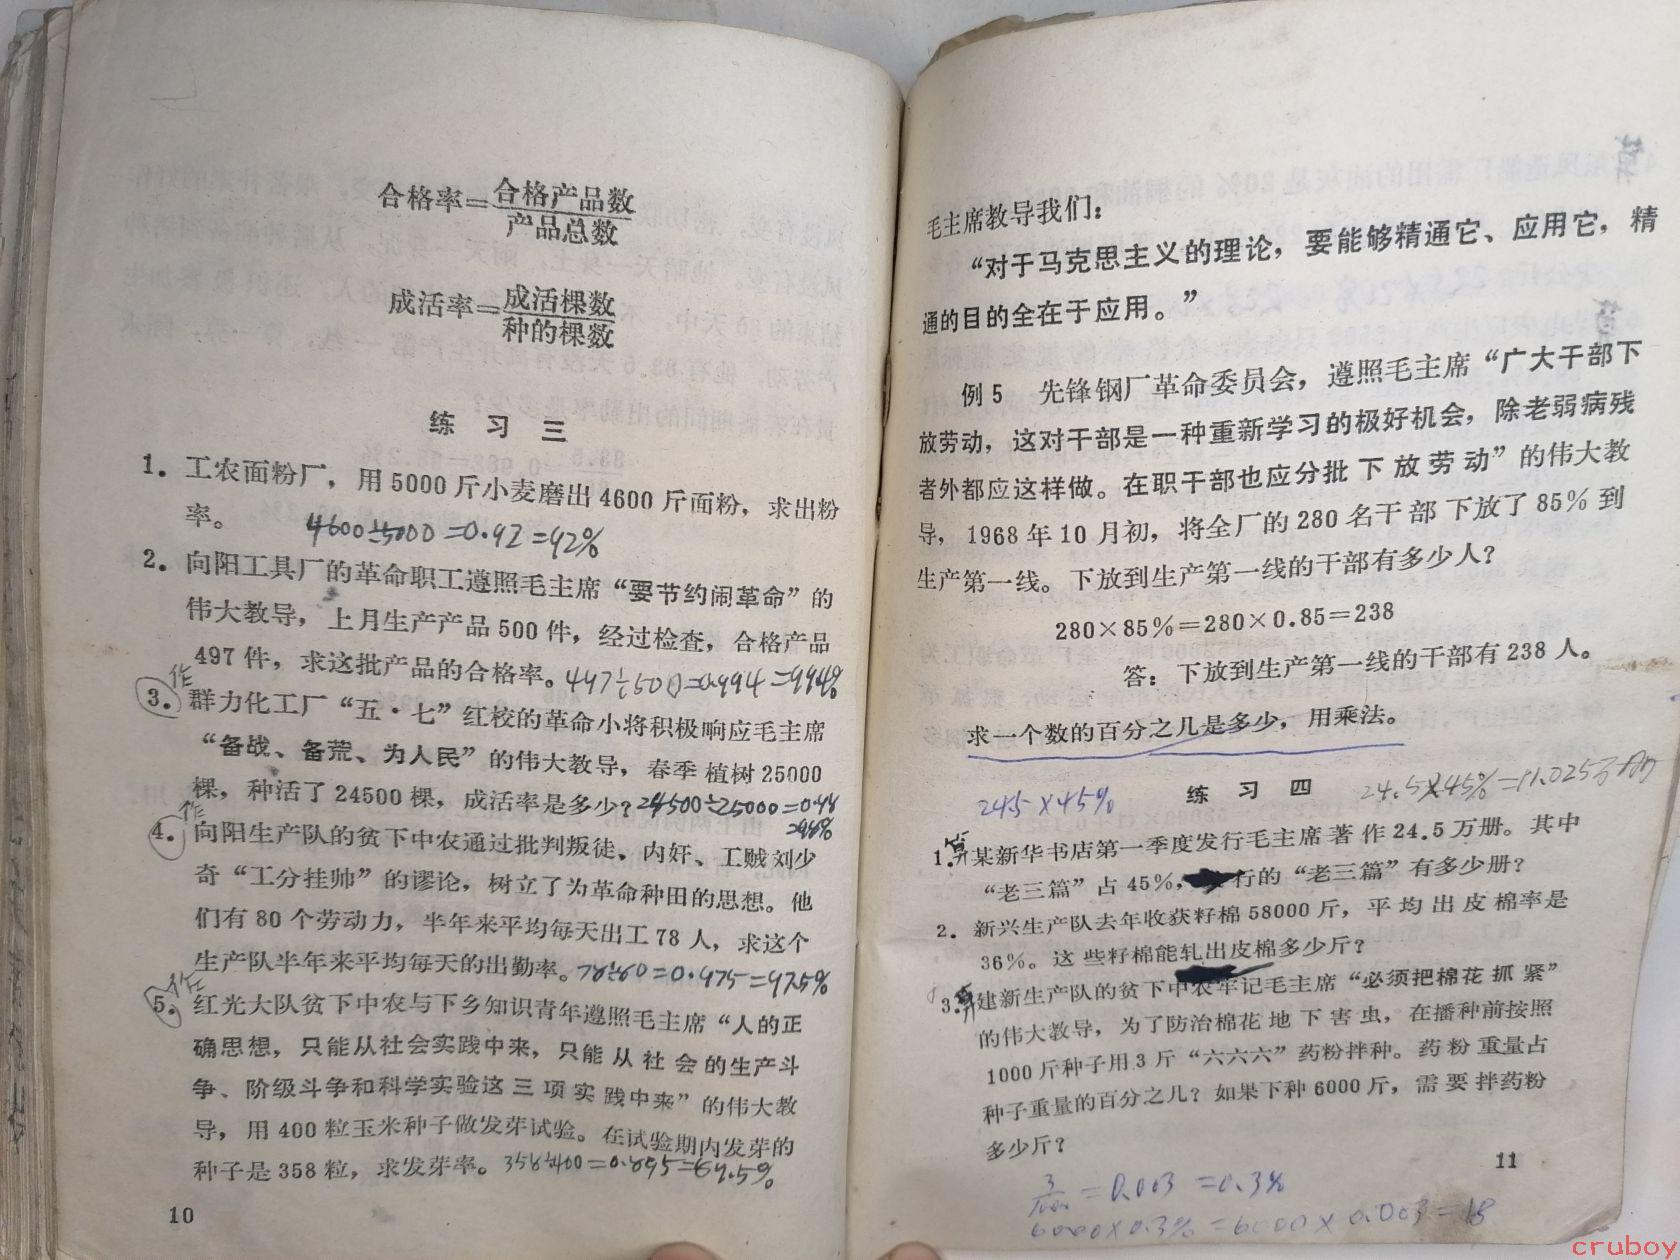 合格率=合格产品数/产品总数
成活率=成活棵数/种的棵数
练习三
1. 工农面粉厂，用5000斤小麦磨出4600斤面粉，求出粉
率。 4600÷5000=0.92=92%
2. 向阳工具厂的革命职工遵照毛主席“要节约闹革命”的
伟大教导，上月生产产品500件，经过检查，合格产品
497件，求这批产品的合格率。497÷500=0.994=99.4%
作
3. 群力化工厂“五·七”红校的革命小将积极响应毛主席
“备战、备荒、为人民”的伟大教导，春季植树25000
棵，种活了24500棵，成活率是多少？24500÷25000=0.98
=98%
作
4. 向阳生产队的贫下中农通过批判叛徒、内奸、工贼刘少
奇“工分挂帅”的谬论，树立了为革命种田的思想。他
们有80个劳动力，半年来平均每天出工78人，求这个
生产队半年来平均每天的出勤率。78÷80=0.975=97.5%
作
5. 红光大队贫下中农与下乡知识青年遵照毛主席“人的正
确思想，只能从社会实践中来，只能从社会的生产斗
争、阶级斗争和科学实验这三项实践中来”的伟大教
导，用400粒玉米种子做发芽试验。在试验期内发芽的
种子是358粒，求发芽率。358÷400=0.895=89.5%
10
毛主席教导我们：
“对于马克思主义的理论，要能够精通它、应用它，精
通的目的全在于应用。”
例5 先锋钢厂革命委员会，遵照毛主席“广大干部下
放劳动，这对干部是一种重新学习的极好机会，除老弱病残
者外都应这样做。在职干部也应分批下放劳动”的伟大教
导，1968年10月初，将全厂的280名干部下放了85%到
生产第一线。下放到生产第一线的干部有多少人？
280×85%=280×0.85=238
答：下放到生产第一线的干部有238人。
求一个数的百分之几是多少，用乘法。
24.5×45% 练习四 24.5×45%=11.025万
1. 算 某新华书店第一季度发行毛主席著作24.5万册。其中
“老三篇”占45%，行的“老三篇”有多少册？
2. 新兴生产队去年收获籽棉58000斤，平均出皮棉率是
36%。这些籽棉能轧出皮棉多少斤？
3. 算 建新生产队的贫下中农牢记毛主席“必须把棉花抓紧”
的伟大教导，为了防治棉花地下害虫，在播种前按照
1000斤种子用3斤“六六六”药粉拌种。药粉重量占
种子重量的百分之几？如果下种6000斤，需要拌药粉
多少斤？
11
3/1000=0.003=0.3%
6000×0.3%=6000×0.003=18
cruboy